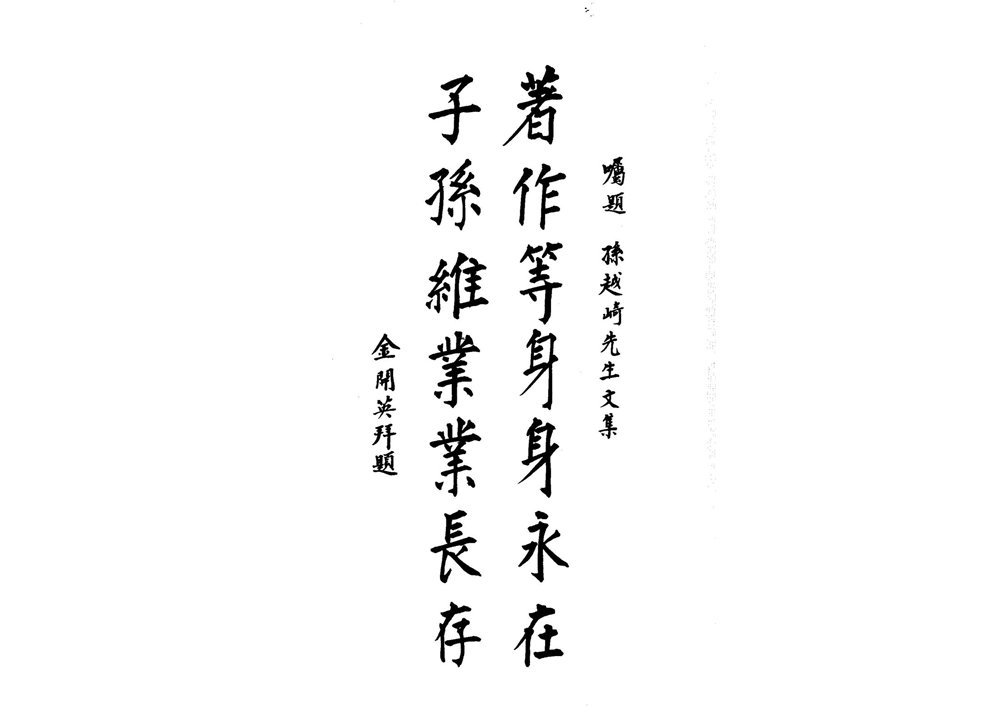 囑題 孫越崎先生文集
著作等身身永在
子孫維業業長存
金開英拜題